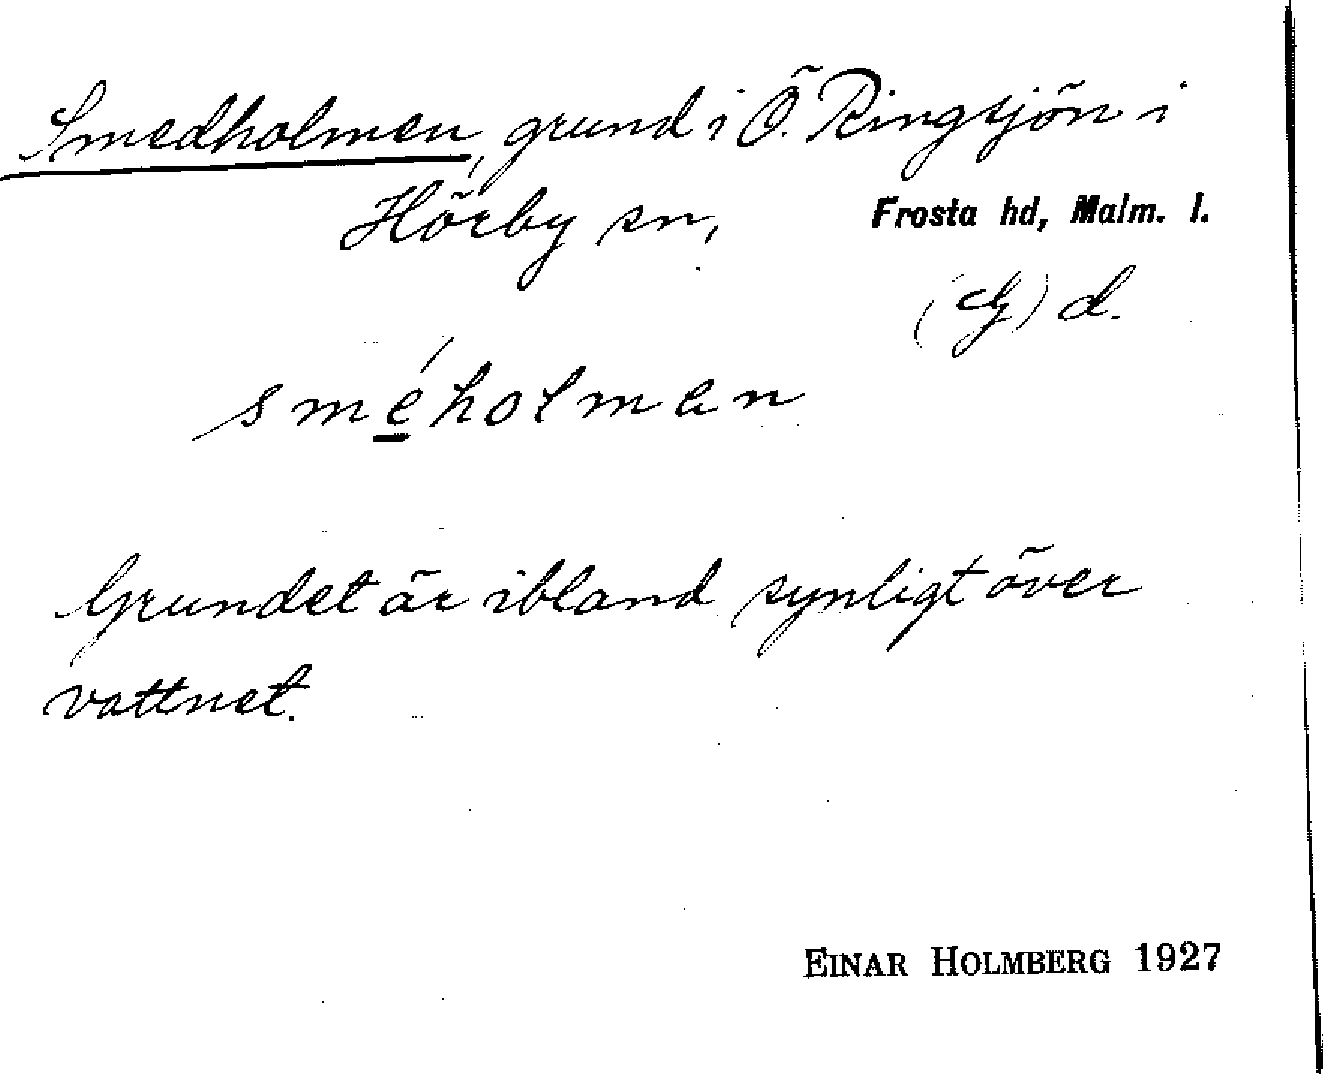 Smedholmen, grund i Ö. Ringsjön i
Hörby sn, Frosta hd, Malm. l.
(G) d.
sméholman
Grundet är ibland synligt över
vattnet.
EINAR HOLMBERG 1927